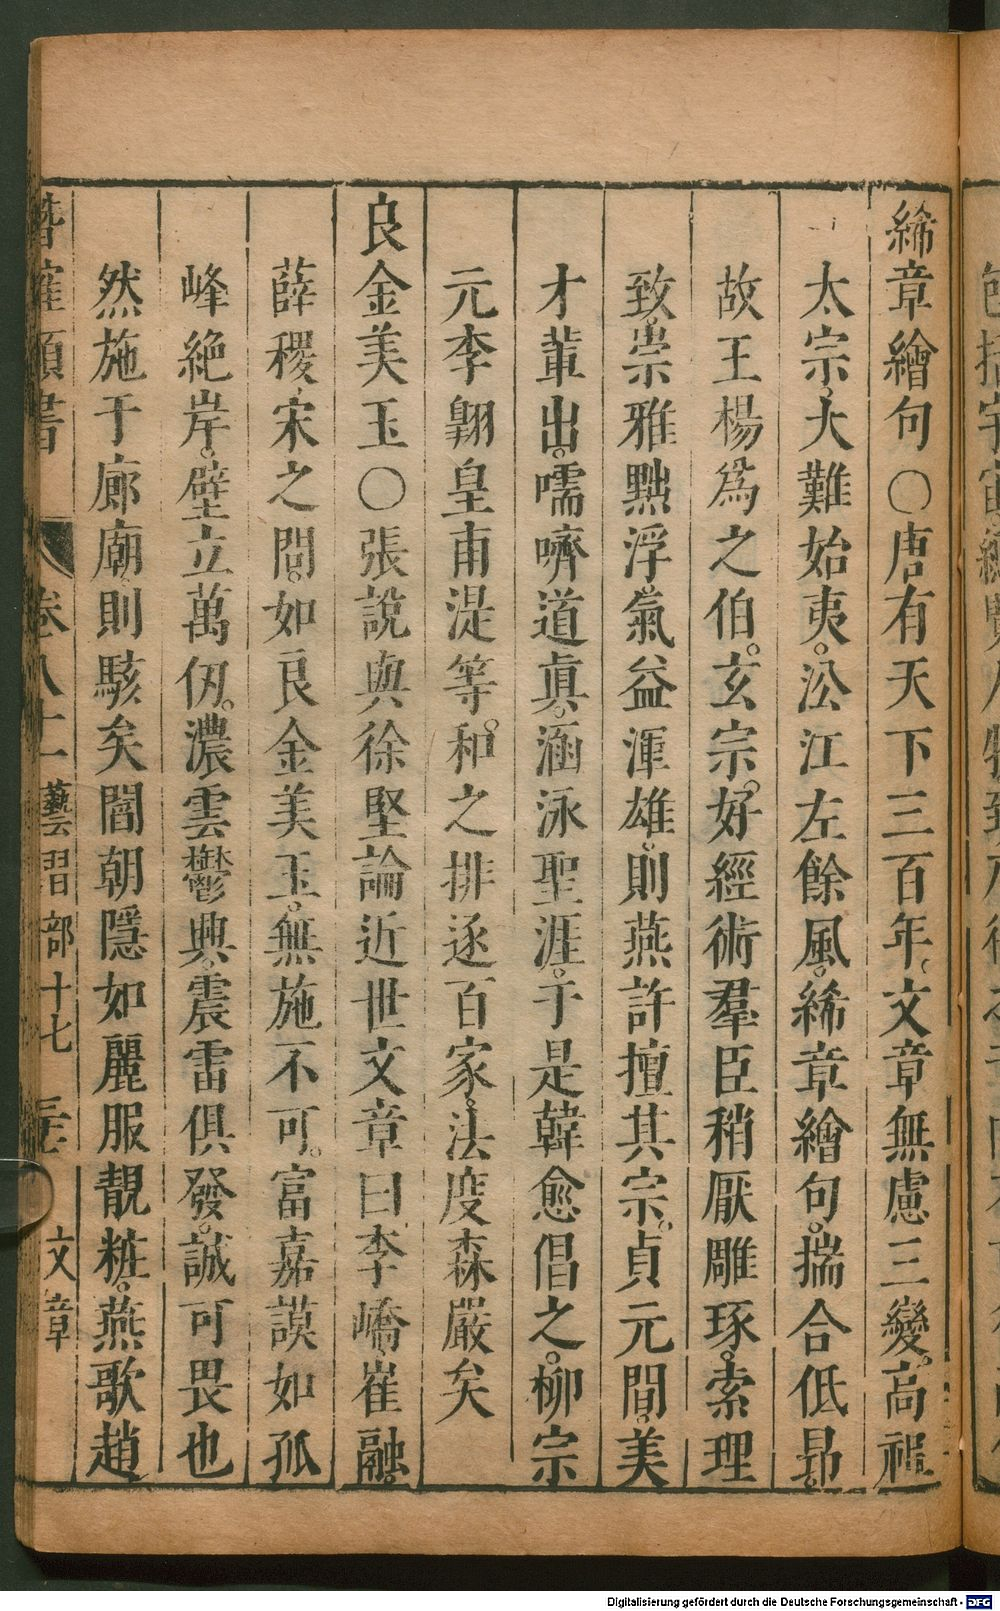 絺章繪句〇唐有天下三百年。文章無慮三變。高祖
太宗、大難始夷。㳂江左餘風。絺章繪句。揣合低昻。
故王楊爲之伯。玄宗。好經術羣臣稍厭雕琢。索理
致、崇雅黜浮。氣益渾雄。則燕許擅其宗。貞元間。美
才輩出。嚅嚌道眞。涵泳聖涯。于是韓愈倡之。柳宗
元李翺皇甫湜等。和之排逐百家。法度森嚴矣
良金美玉〇張說與徐堅論近世文章曰李嶠、崔融。
薛稷、宋之問。如良金美玉。無施不可。富嘉謨如孤
峰絕岸。壁立萬仞。濃雲鬱興、震雷俱發。誠可畏也
然施于廊廟、則駭矣閻朝隱如麗服靚粧。燕歌趙
潛確類書 卷八十二 藝習部十七 文章
Digitalisierung gefördert durch die Deutsche Forschungsgemeinschaft - DFG